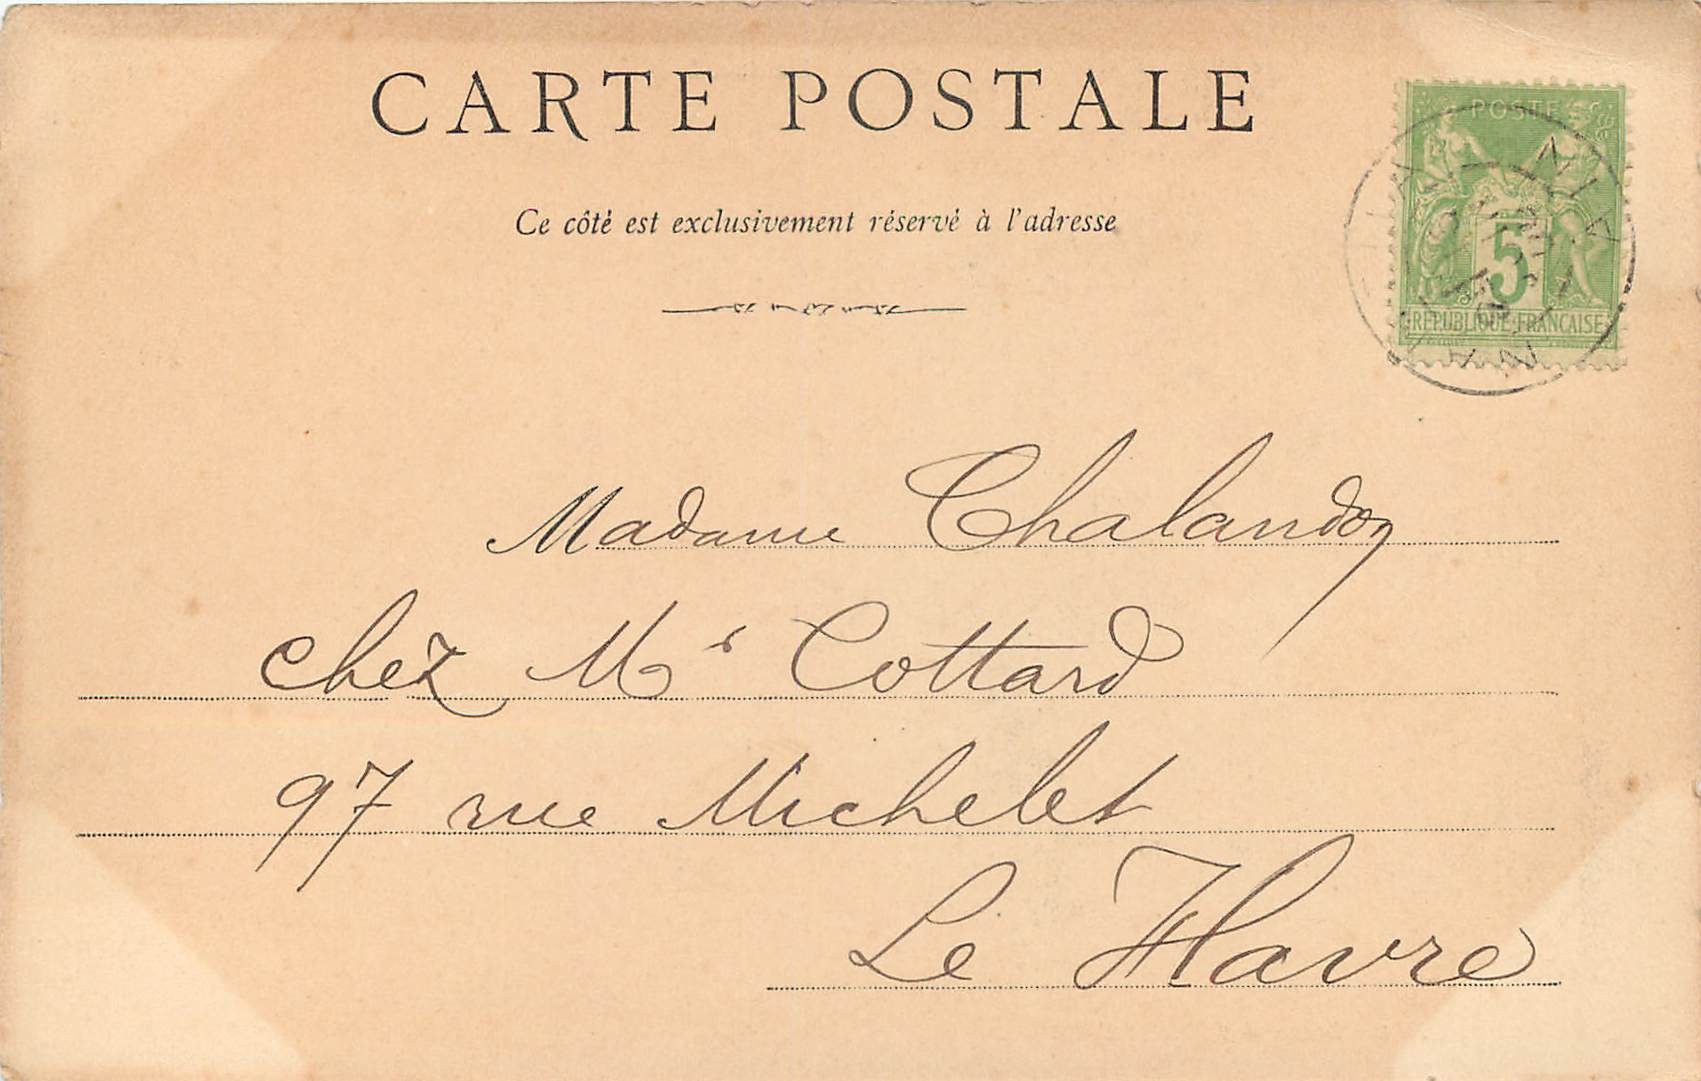 CARTE POSTALE
Ce côté est exclusivement réservé à l'adresse
POSTE
5
RÉPUBLIQUE FRANÇAISE
Madame Chalandon
chez Mr Cottard
97 rue Michelet
Le Havre